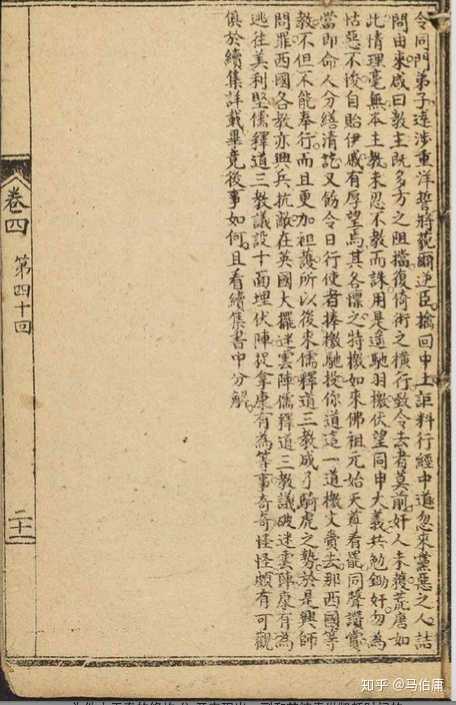 令同門弟子遠涉重洋誓將藐爾逆臣擒回申土詎料行經中道忽來黨惡之人詰
問由來咸曰教主既多方之阻擋復倚術之橫行致令去者莫前奸人未獲荒唐如
此情理毫無本主教未忍不教而誅用是遙馳羽檄伏望同申大義共勉鋤奸勿為
怙惡不悛自貽伊戚有厚望焉其各懔之特檄如來佛祖元始天尊看罷同聲讚賞
當即命人分繕清訖又飭令日行使者捧檄馳投你道這一道檄文賫去那西國等
教不但不能奉行而且更加袒護所以後來儒釋道三教成了騎虎之勢於是興師
問罪西國各教亦興兵抗敵在英國大擺迷雲陣儒釋道三教議破迷雲陣康有為
逃往美利堅儒釋道三教議設十面埋伏陣捉拿康有為等事奇奇怪怪頗有可觀
俱於續集詳載畢竟後事如何且看續集書中分解
卷四
第四十回
二十一
知乎 @马伯庸